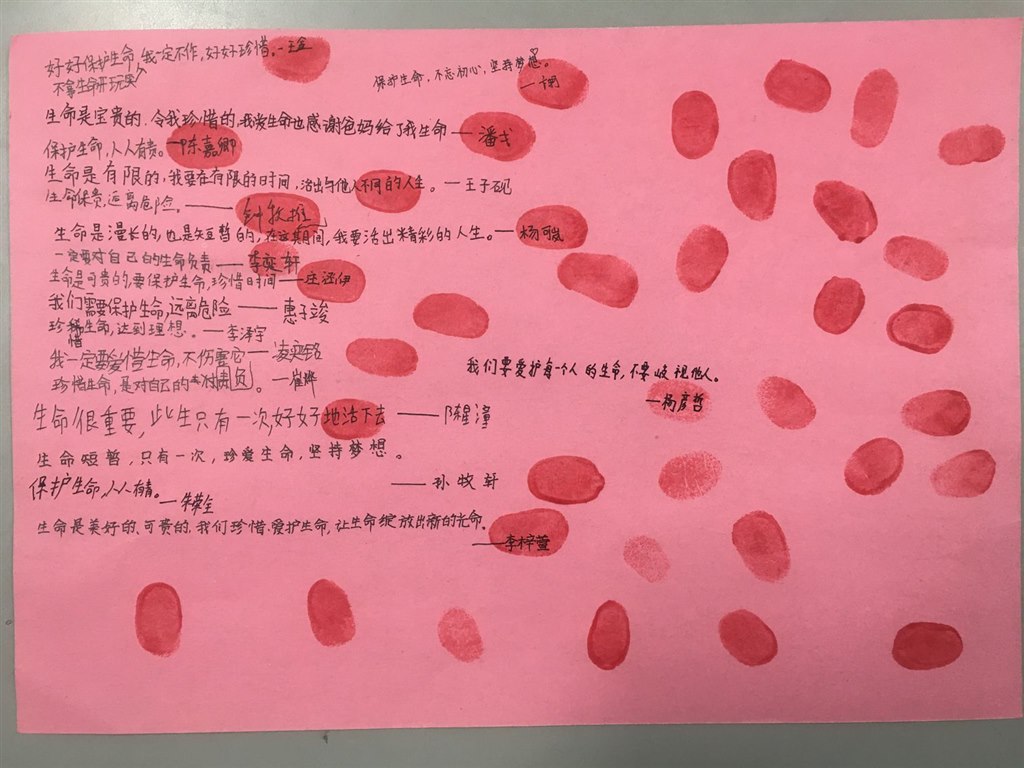 好好保护生命,我一定不作,好好珍惜。—王
不拿生命开玩笑
保护生命,不忘初心,坚持梦想。
生命是宝贵的,令我珍惜的,我爱生命也感谢爸妈给了我生命——潘弋
保护生命,人人有责。—陈嘉卿
生命是有限的,我要在有限的时间,活出与他人不同的人生。—王子砚
生命保贵,远离危险。——
生命是漫长的,也是短暂的,在这期间,我要活出精彩的人生。—杨可
一定要对自己的生命负责——李奕轩
生命是可贵的,要保护生命,珍惜时间——庄泾伊
我们需要保护生命,远离危险——惠子竣
珍惜生命,达到理想。—李泽宇
我一定要爱惜生命,不伤害它—凌奕铭
我们要爱护每个人的生命,不要歧视他人。
—杨彦哲
珍惜生命,是对自己的负责。—崔烨
生命很重要,此生只有一次,好好地活下去——陈星潼
生命短暂,只有一次,珍爱生命,坚持梦想。
——孙牧轩
保护生命,人人有责。
—朱荣全
生命是美好的、可贵的,我们珍惜、爱护生命,让生命绽放出新的光命。
——李梓萱